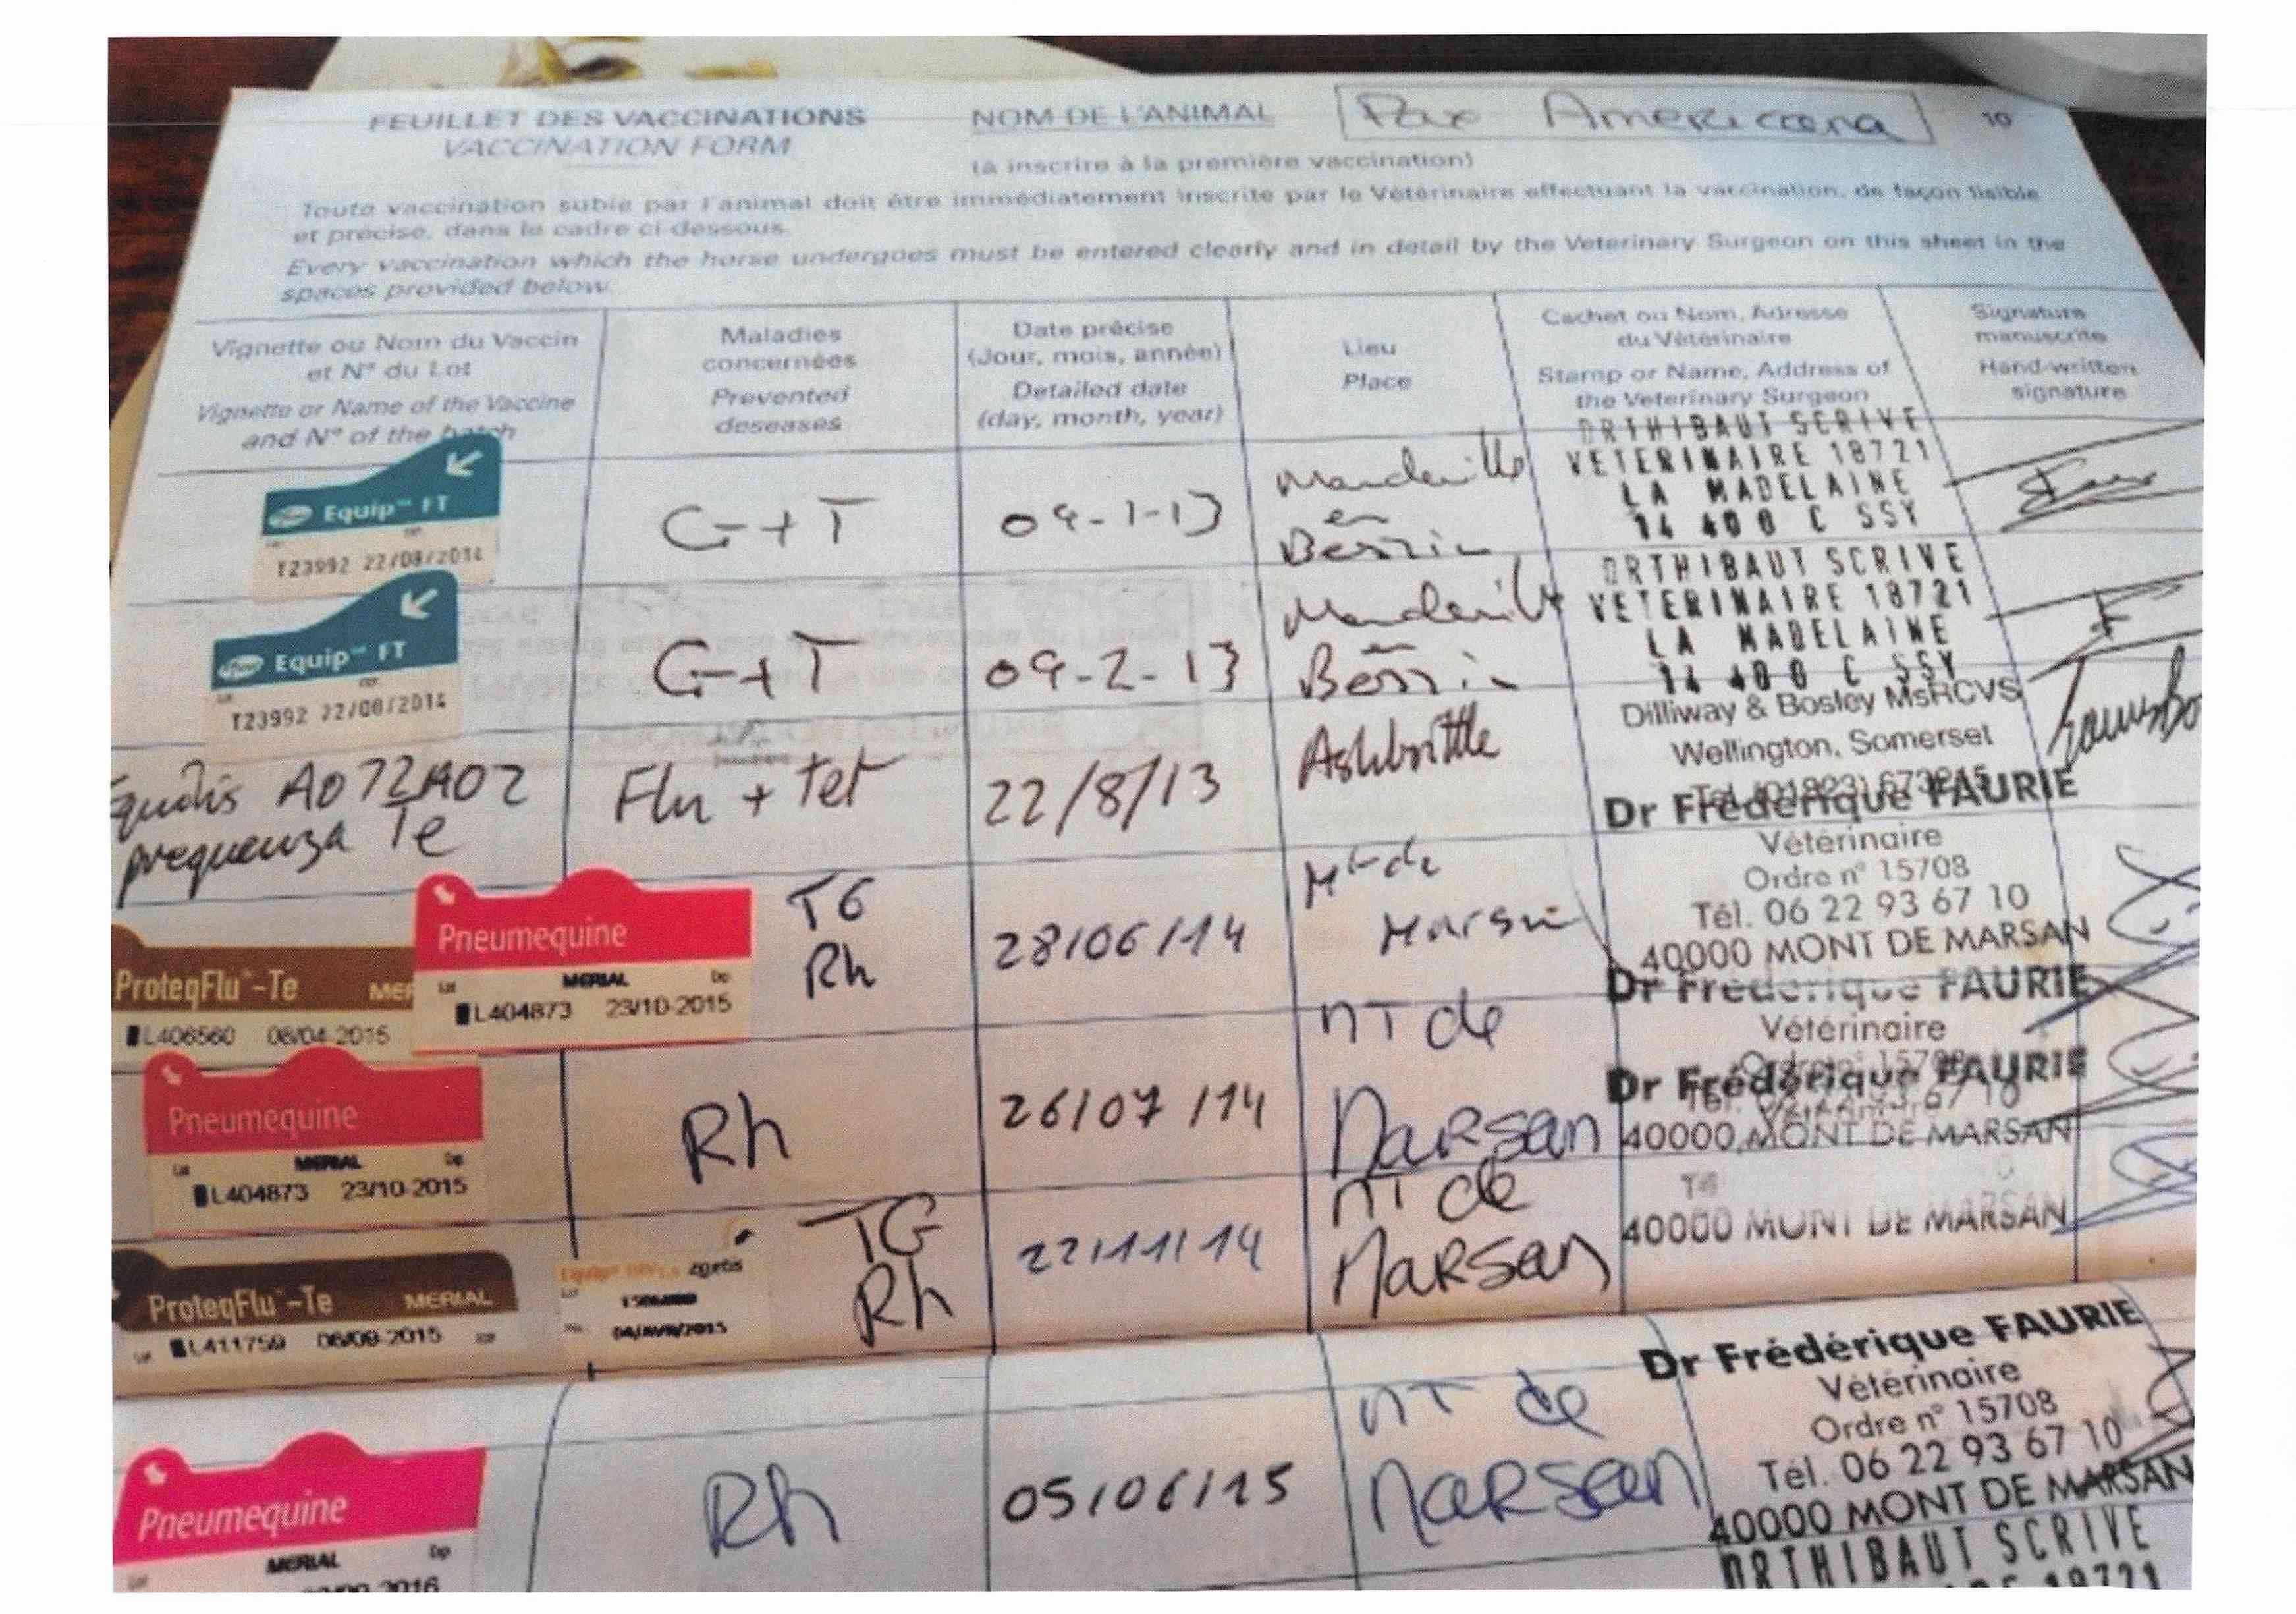 FEUILLET DES VACCINATIONS
VACCINATION FORM
NOM DE L'ANIMAL
Pax Americana
10
(à inscrire à la première vaccination)
Toute vaccination subie par l'animal doit être immédiatement inscrite par le Vétérinaire effectuant la vaccination, de façon lisible
et précise, dans le cadre ci-dessous.
Every vaccination which the horse undergoes must be entered clearly and in detail by the Veterinary Surgeon on this sheet in the
spaces provided below.
Vignette ou Nom du Vaccin
et N° du Lot
Vignette or Name of the Vaccine
and N° of the batch
Maladies
concernées
Prevented
deseases
Date précise
(Jour, mois, année)
Detailed date
(day, month, year)
Lieu
Place
Cachet ou Nom, Adresse
du Vétérinaire
Stamp or Name, Address of
the Veterinary Surgeon
Signature
manuscrite
Hand-written
signature
Equip™ FT
T23992 22/08/2014
G+T
09-1-13
en
Bessin
DRTHIBAUT SCRIVE
VETERINAIRE 18721
LA MADELAINE
14 400 C SSY
Equip™ FT
T23992 22/08/2014
G+T
09-2-13
en
Bessin
DRTHIBAUT SCRIVE
VETERINAIRE 18721
LA MADELAINE
14 400 C SSY
Equilis A072A02
prequenza Te
Flu + tet
22/8/13
Ashbrittle
Dilliway & Bosley MsRCVS
Wellington, Somerset
ProteqFlu™-Te
L406560 08/04-2015
Pneumequine
MERIAL
L404873 23/10-2015
TG
Rh
28/06/14
Mt de
Marsan
Dr Frédérique FAURIE
Vétérinaire
Ordre n° 15708
Tél. 06 22 93 67 10
40000 MONT DE MARSAN
Pneumequine
Lot MERIAL Exp
L404873 23/10-2015
Rh
26/07/14
MT de
MARSAN
Dr Frédérique FAURIE
Vétérinaire
40000 MONT DE MARSAN
ProteqFlu™-Te MERIAL
L411759 06/09-2015
zoetis
04/AVR/2015
TG
Rh
22/11/14
MT de
MARSAN
Dr Frédérique FAURIE
40000 MONT DE MARSAN
Pneumequine
MERIAL Exp
2016
Rh
05/06/15
MT de
MARSAN
Dr Frédérique FAURIE
Vétérinaire
Ordre n° 15708
Tél. 06 22 93 67 10
40000 MONT DE MARSAN
DRTHIBAUT SCRIVE
18721